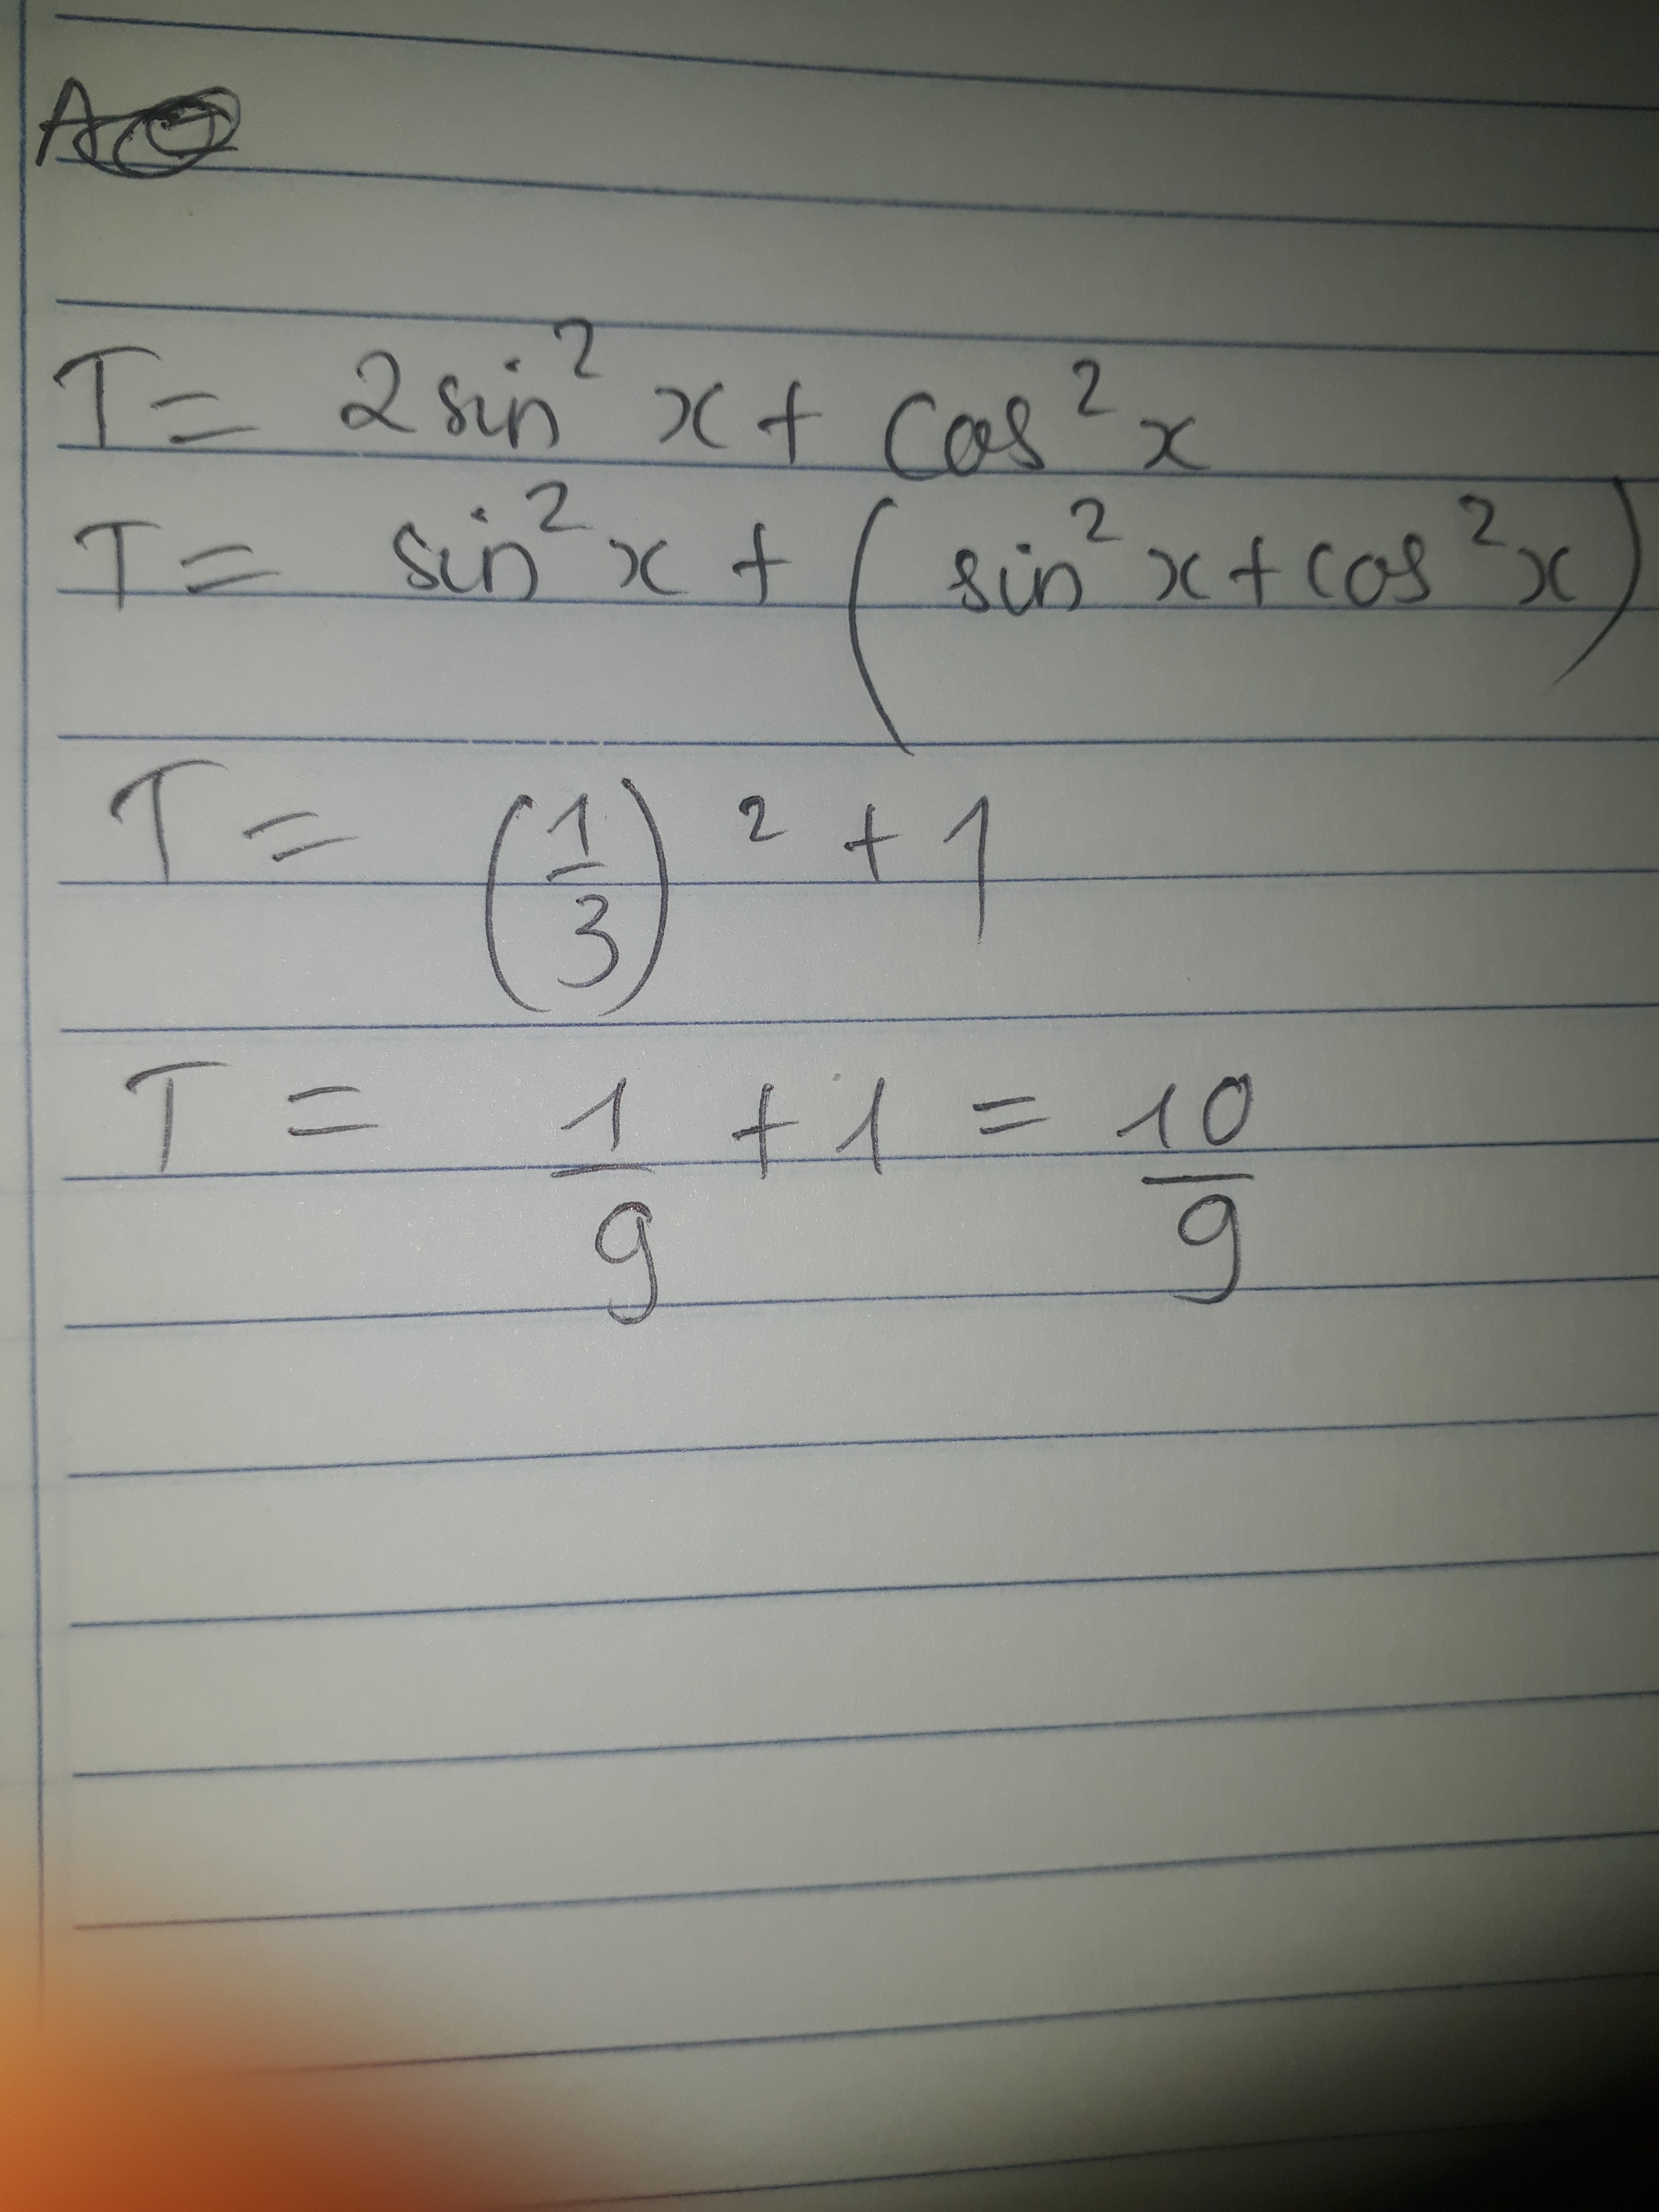 A
T = 2 sin² x + cos² x
T = sin² x + (sin² x + cos² x)
T = (1/3)² + 1
T = 1/9 + 1 = 10/9